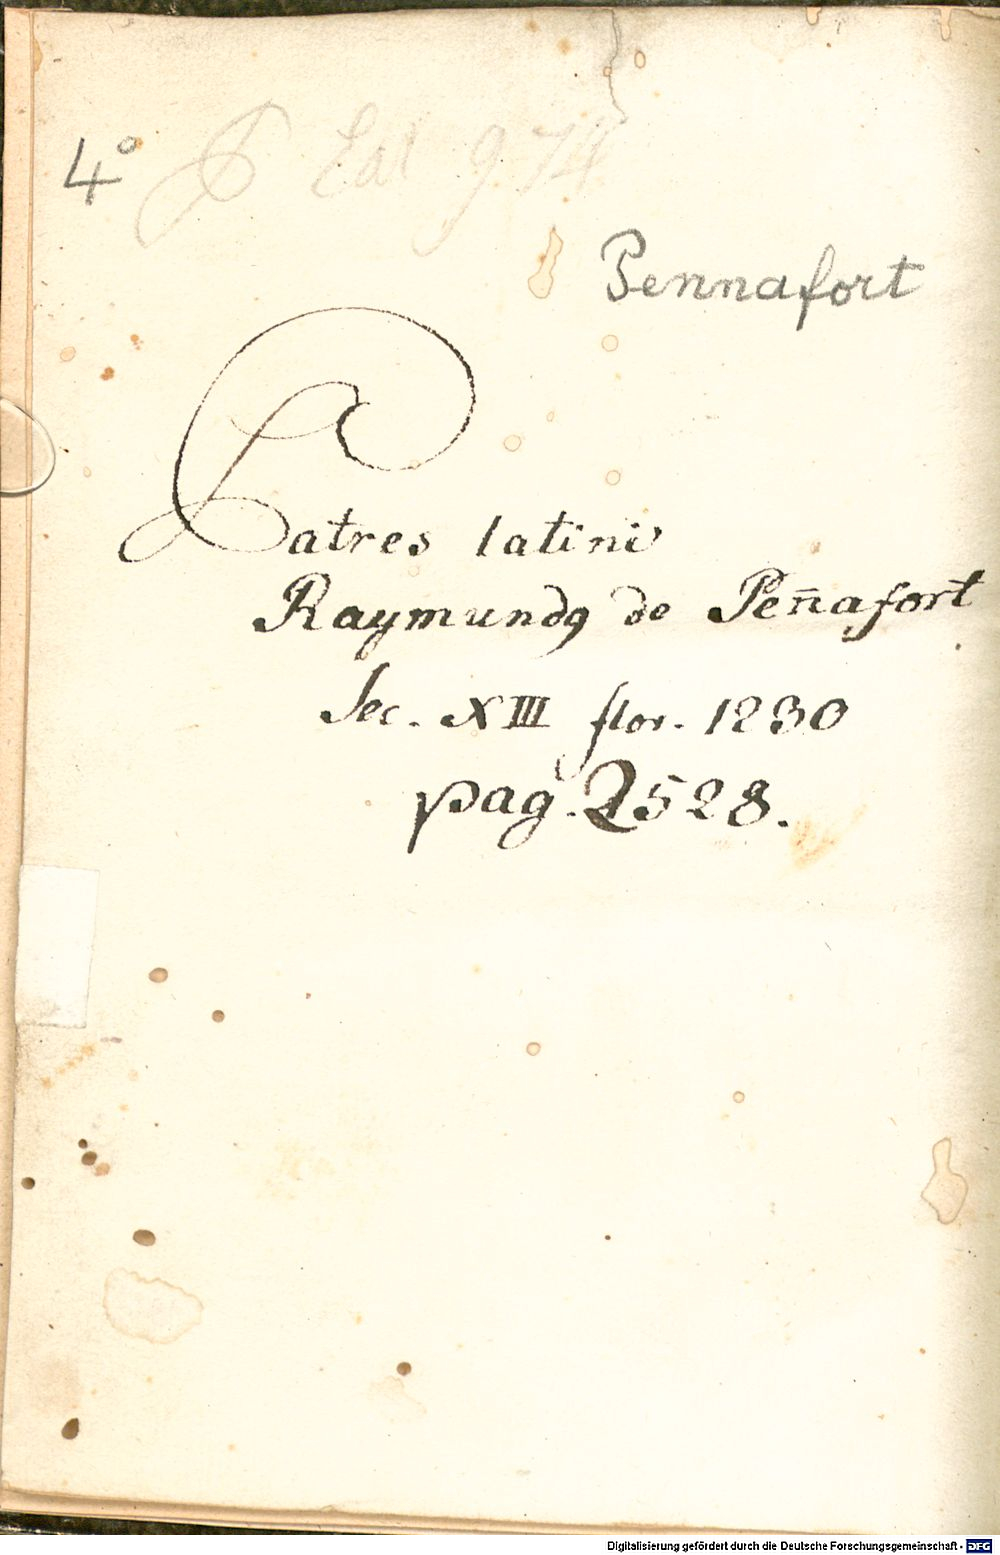 4°
P Lat 974
Pennafort
Patres latini
Raymundꝯ de Peñafort.
Sec. XIII flor. 1230
pag. 2528.
Digitalisierung gefördert durch die Deutsche Forschungsgemeinschaft - DFG